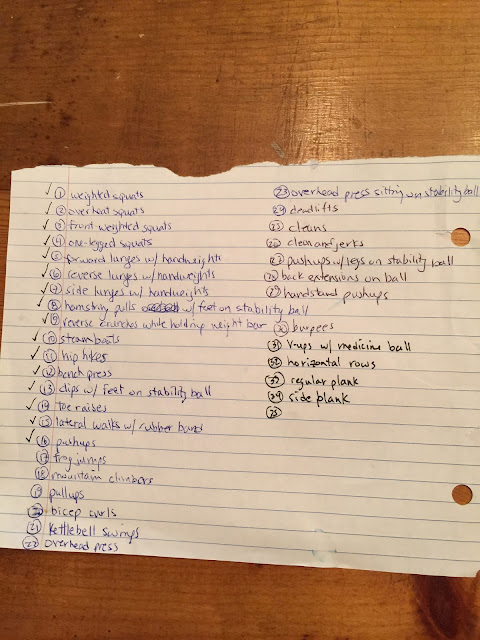 ✓ 1 weighted squats
✓ 2 overheat squats
✓ 3 front weighted squats
✓ 4 one-legged squats
✓ 5 forward lunges w/ handweights
✓ 6 reverse lunges w/ handweights
✓ 7 side lunges w/ handweights
✓ 8 hamstring pulls w/ feet on stability ball
✓ 9 reverse crunches while holding weight bar
✓ 10 steamboats
✓ 11 hip hikes
✓ 12 bench press
✓ 13 dips w/ feet on stability ball
✓ 14 toe raises
✓ 15 lateral walks w/ rubber band
✓ 16 pushups
17 frog jumps
18 mountain climbers
19 pullups
20 bicep curls
21 kettlebell swings
22 overhead press
23 overhead press sitting on stability ball
24 deadlifts
25 cleans
26 clean and jerks
27 pushups w/ legs on stability ball
28 back extensions on ball
29 handstand pushups
30 burpees
31 V-ups w/ medicine ball
32 horizontal rows
33 regular plank
34 side plank
35